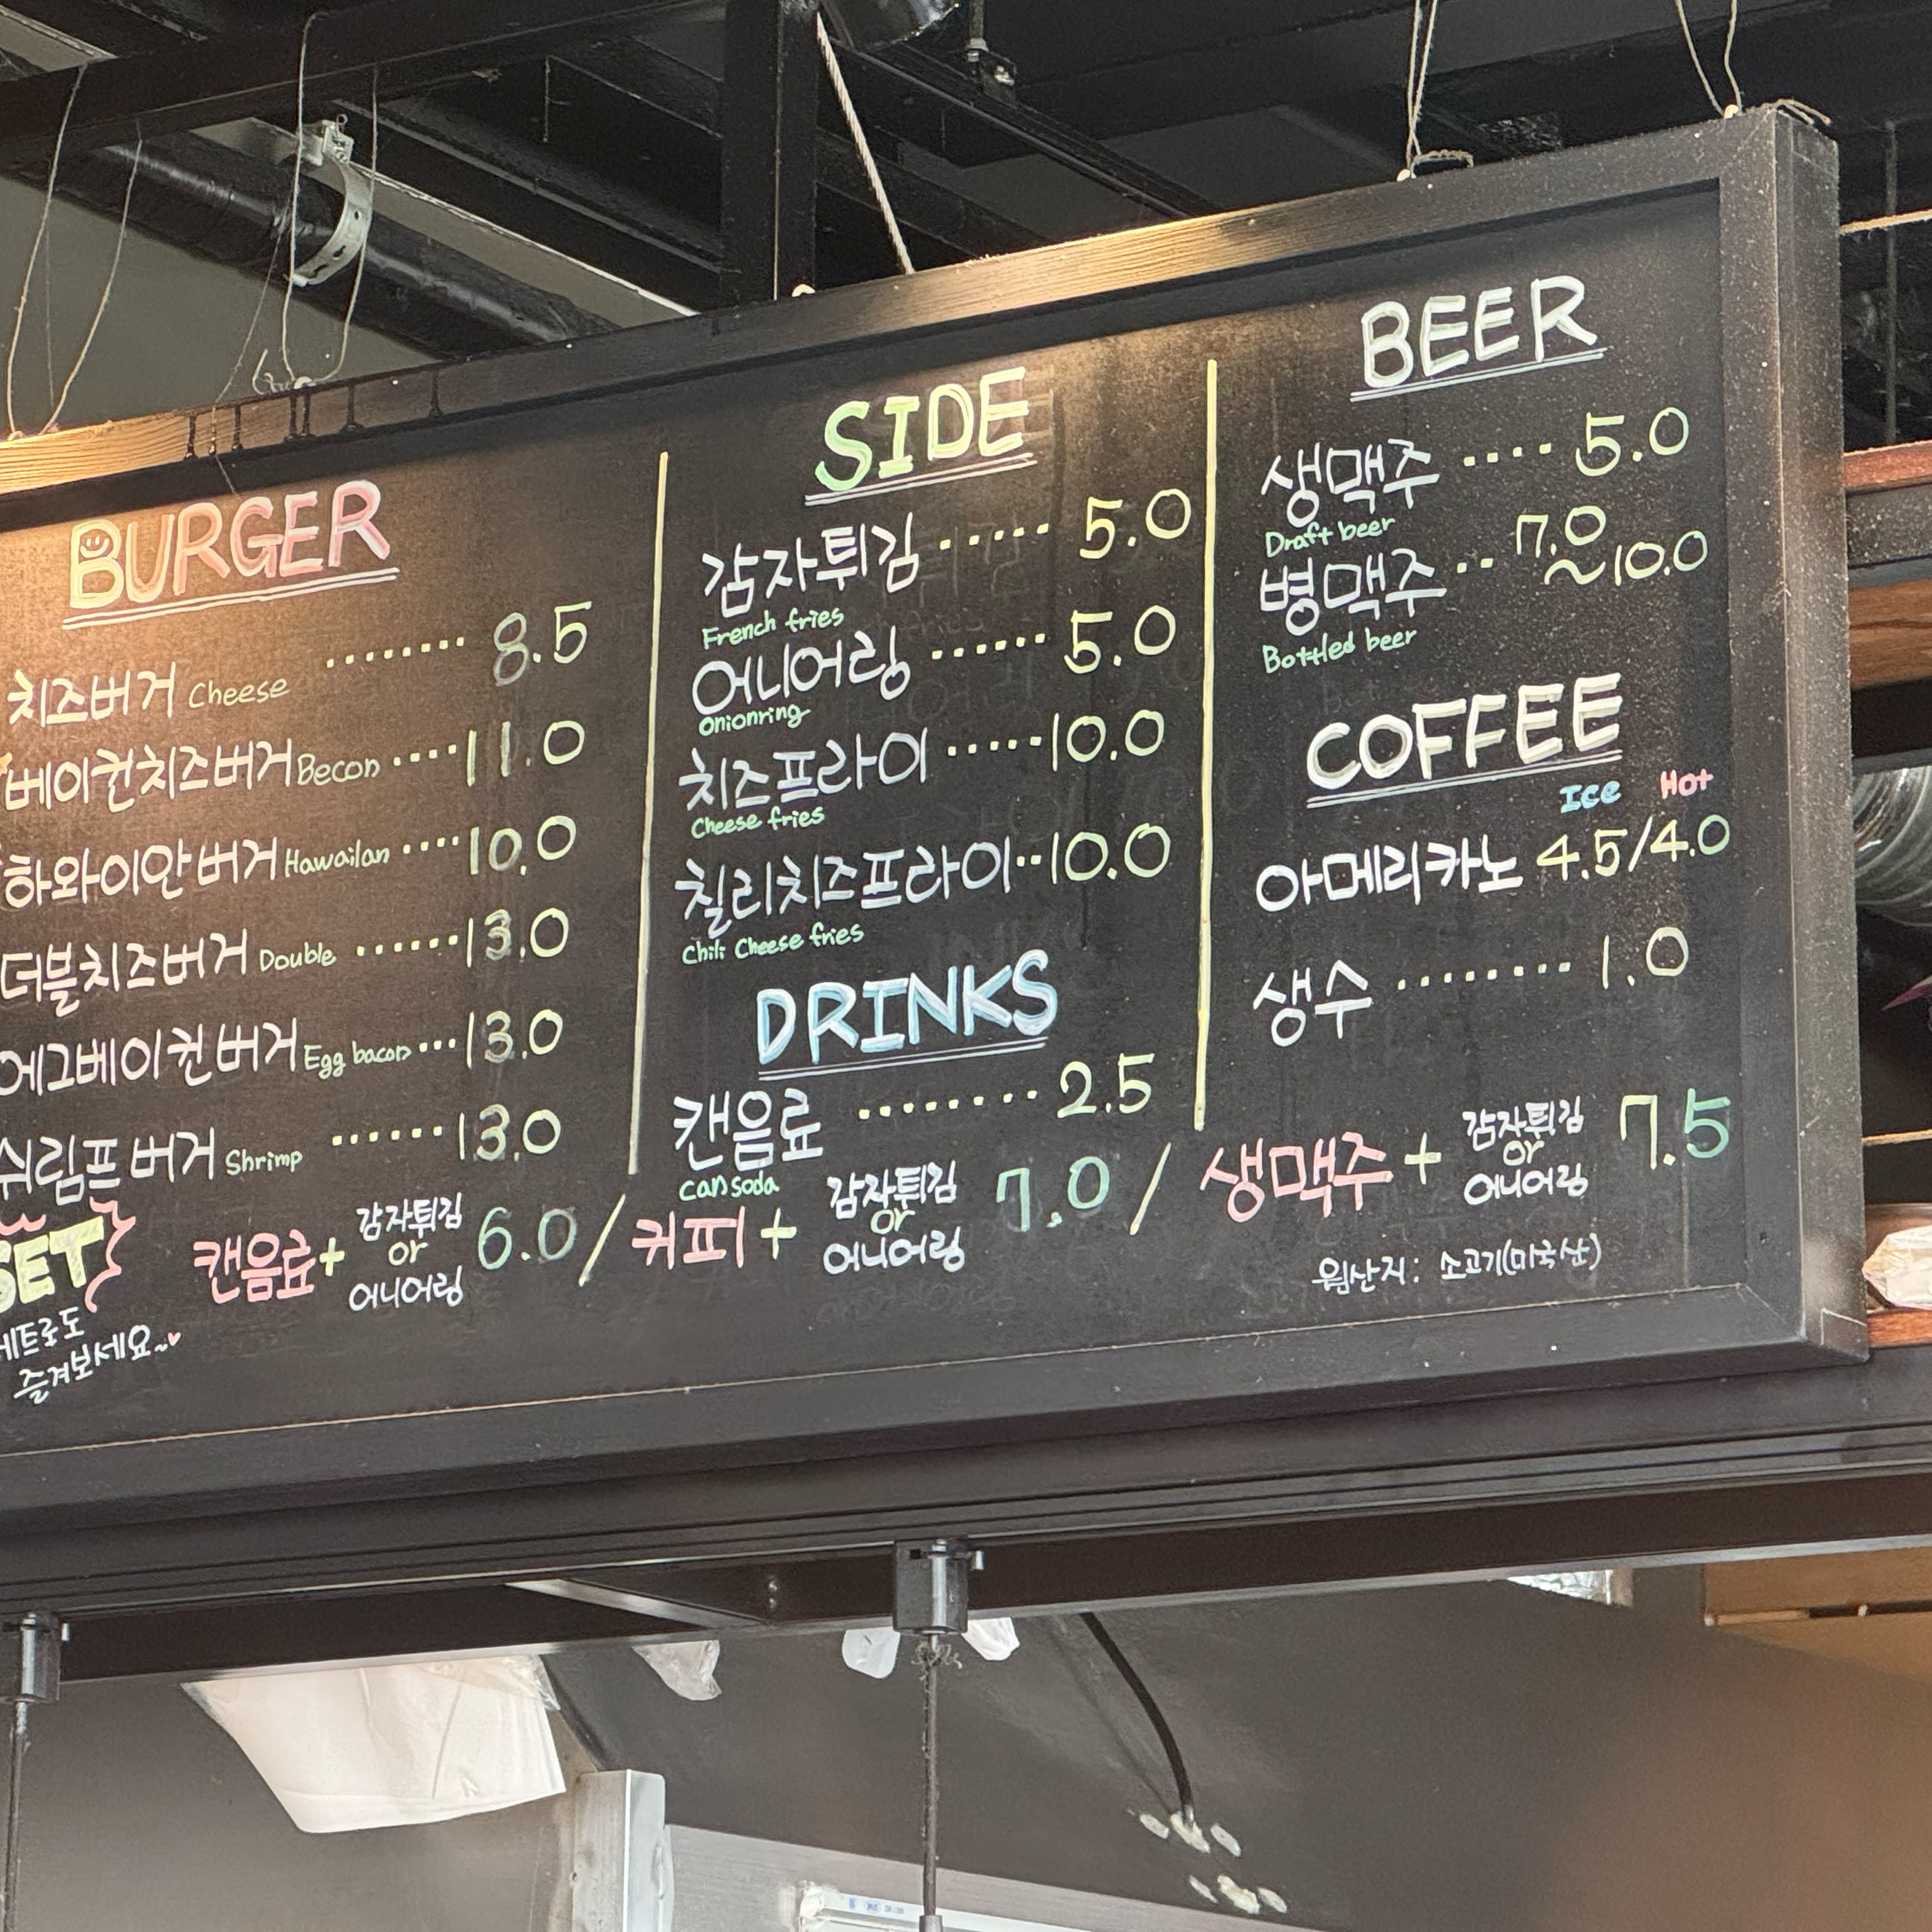 BURGER
치즈버거 Cheese ········ 8.5
베이컨치즈버거 Becon ····11.0
하와이안버거 Hawaiian ····10.0
더블치즈버거 Double ······13.0
에그베이컨버거 Egg bacon ···13.0
쉬림프버거 Shrimp ······13.0
SIDE
감자튀김 ····· 5.0
French fries
어니어링 ······ 5.0
Onionring
치즈프라이 ·····10.0
Cheese fries
칠리치즈프라이··10.0
Chili Cheese fries
DRINKS
캔음료 ········ 2.5
can soda
BEER
생맥주 ···· 5.0
Draft beer
병맥주 ·· 7.0
~10.0
Bottled beer
COFFEE
Ice Hot
아메리카노 4.5/4.0
생수 ········ 1.0
SET
세트로도
즐겨보세요~♥
캔음료+ 감자튀김 or 어니어링 6.0 / 커피+ 감자튀김 or 어니어링 7.0 / 생맥주+ 감자튀김 or 어니어링 7.5
원산지: 소고기(미국산)